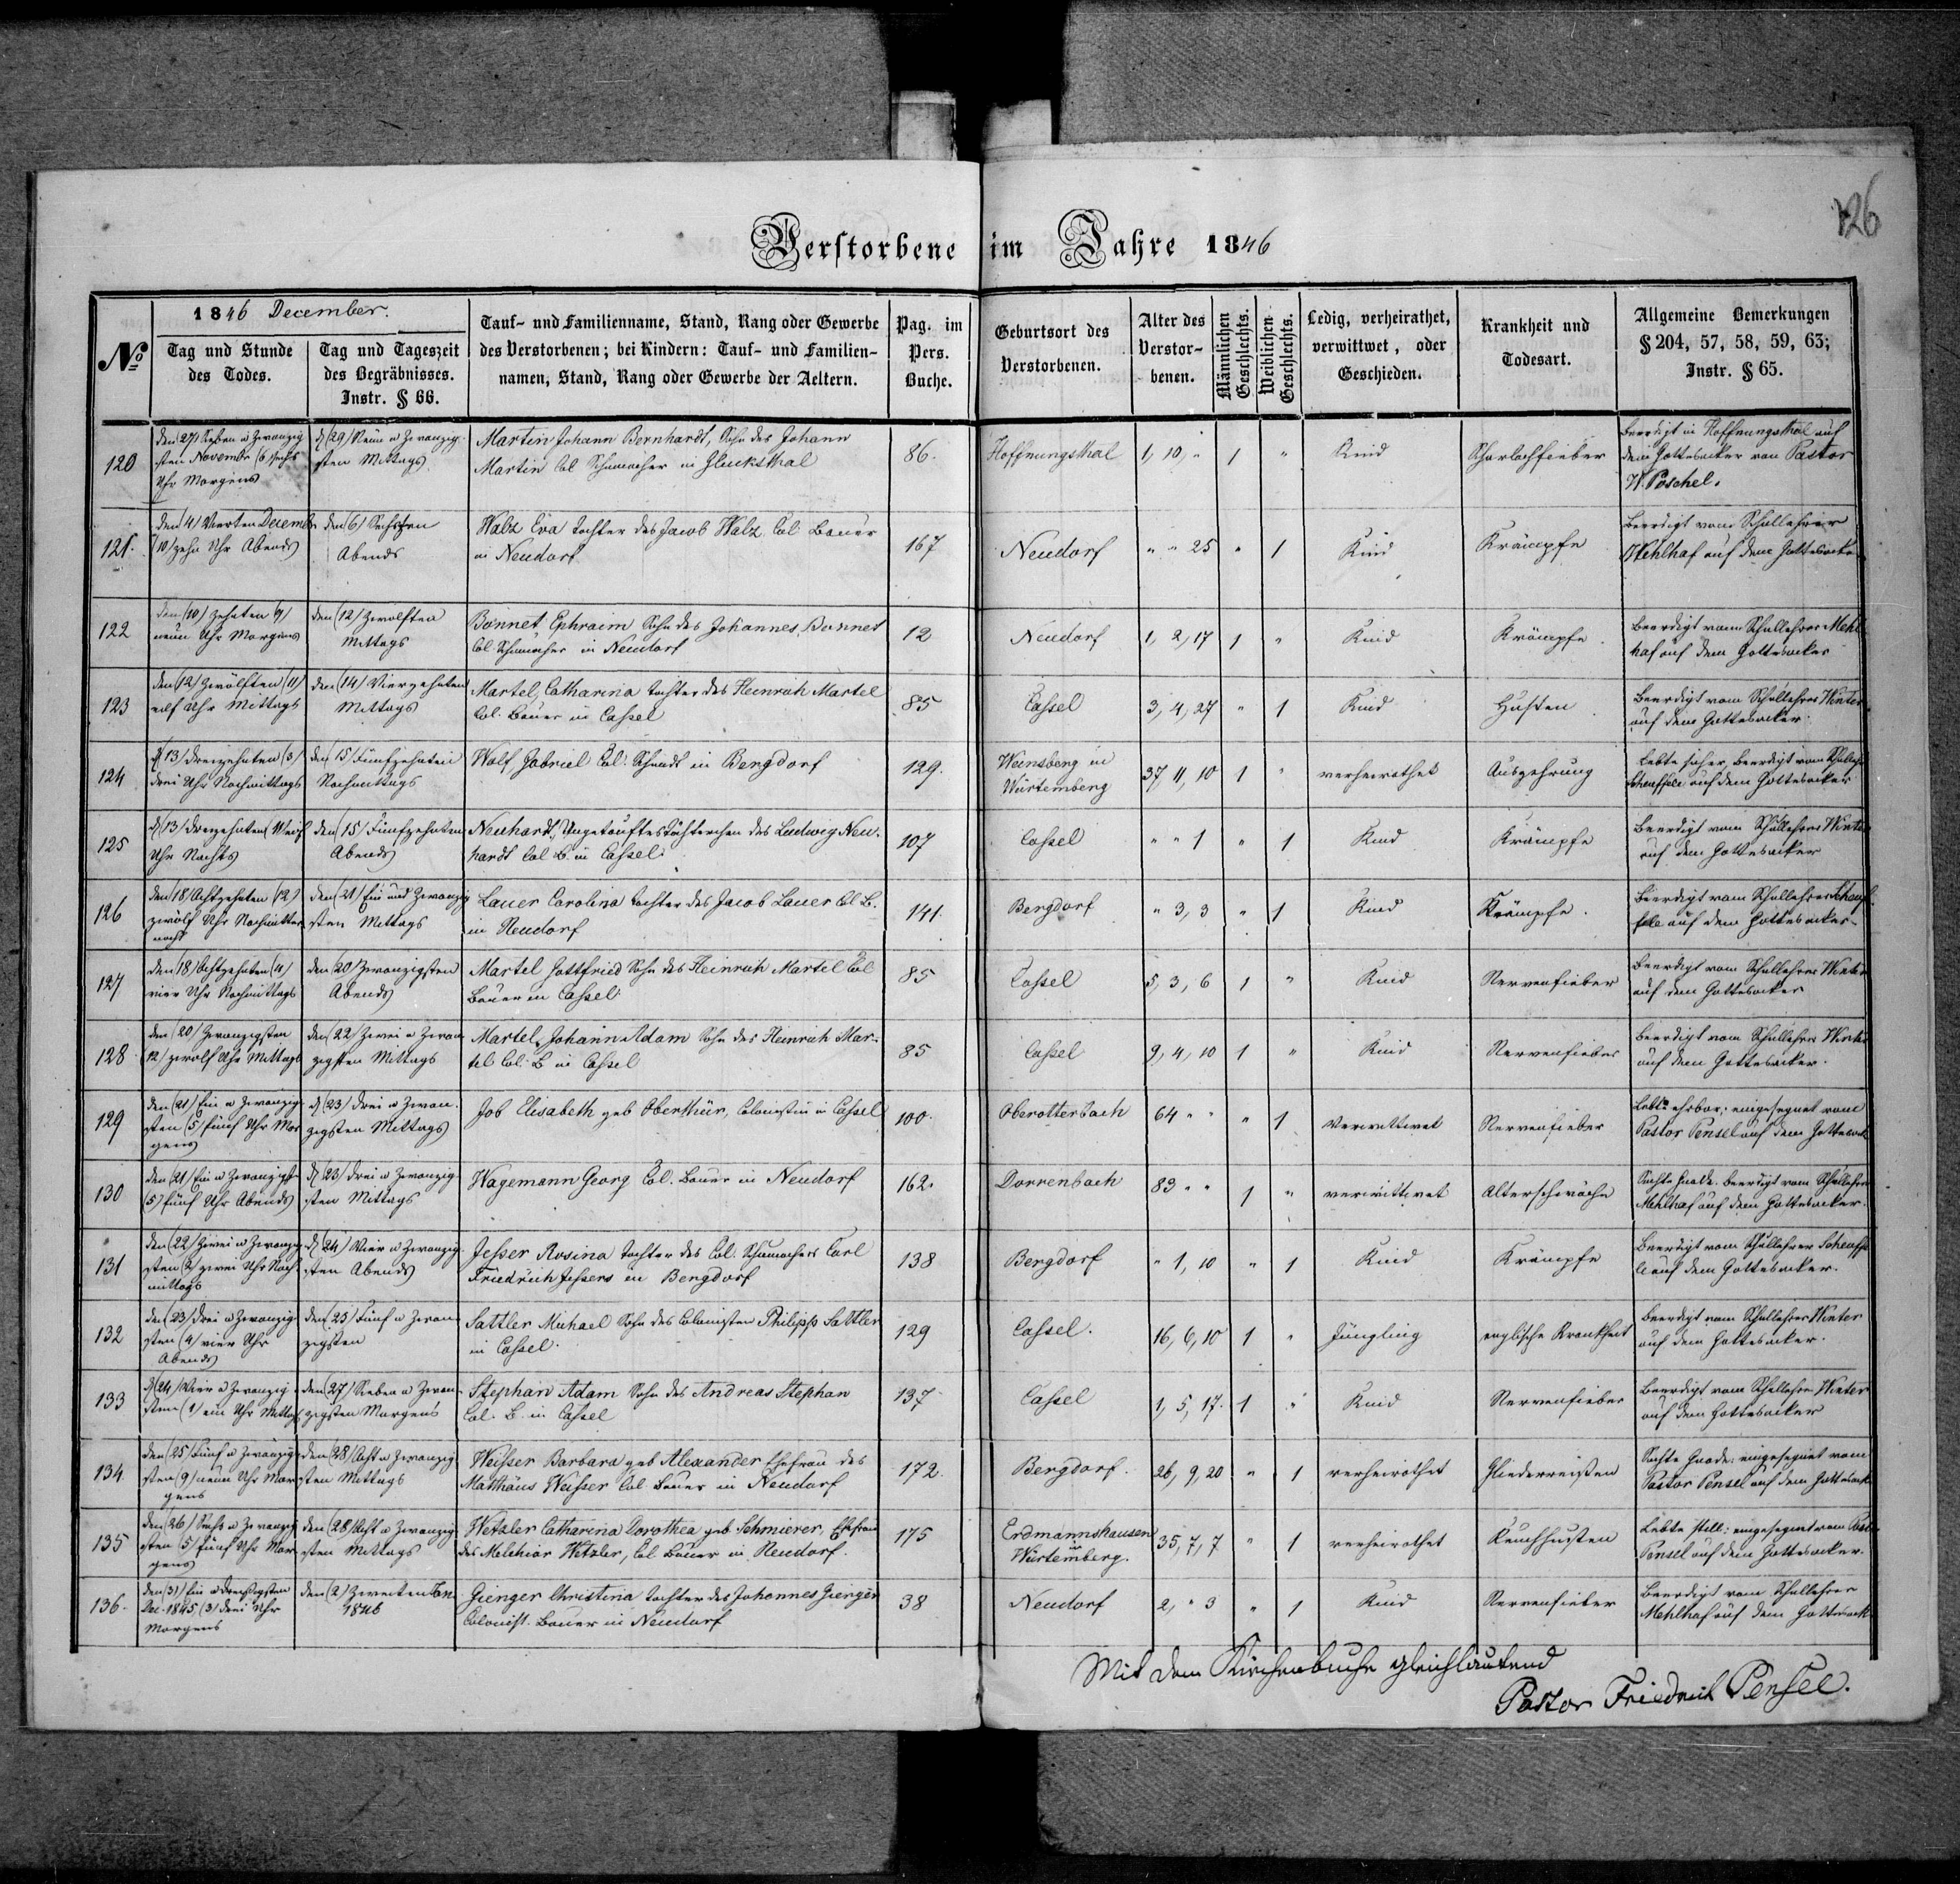 126
Verstorbene im Jahre 1846
No
1846 December.
Tag und Stunde
des Todes.
Tag und Tageszeit
des Begräbnisses.
Instr. § 66.
Tauf- und Familienname, Stand, Rang oder Gewerbe
des Verstorbenen; bei Kindern: Tauf- und Familien-
namen, Stand, Rang oder Gewerbe der Aeltern.
Pag. im
Pers.
Buche.
Geburtsort des
Verstorbenen.
Alter des
Verstor-
benen.
Männlichen
Geschlechts.
Weiblichen
Geschlechts.
Ledig, verheirathet,
verwittwet, oder
Geschieden.
Krankheit und
Todesart.
Allgemeine Bemerkungen
§ 204, 57, 58, 59, 63;
Instr. § 65.
120
den (27) Sieben u Zwanzig
sten November (6) sechs
Uhr Morgens
d (29) Neun u Zwanzig
sten Mittags
Martin Johann Bernhardt, Sohn des Johann
Martin Col Schumacher in Glücksthal
86.
Hoffnungsthal
1, 10, "
1
"
Kind
Scharlachfieber
Beerdigt in Hoffnungsthal auf
dem Gottesacker von Pastor
W. Pöschel.
121.
den (4) Vierten Decemb
(10) zehn Uhr Abends
den (6) Sechsten
Abends
Walz Eva Tochter des Jacob Walz Col Bauer
in Neudorf
167
Neudorf
" " 25
"
1
Kind
Krämpfe
Beerdigt vom Schullehrer
Mehlhaf auf dem Gottesacker
122
den (10) Zehnten (9)
neun Uhr Morgens
den (12) Zwölften
Mittags
Bonnet Ephraim Sohn des Johannes Bonnet
Col Schumacher in Neudorf
12
Neudorf
1, 2, 17
1
"
Kind
Krämpfe
Beerdigt vom Schullehrer Mehl
haf auf dem Gottesacker
123
den (12) Zwölften (11)
eilf Uhr Mittags
den (14) Vierzehnten
Mittags
Martel, Catharina Tochter des Heinrich Martel
Col. Bauer in Cassel
85
Cassel
3, 4, 27
"
1
Kind
Husten
Beerdigt vom Schullehrer Winter
auf dem Gottesacker.
124
d (13) Dreizehnten (3)
drei Uhr Nachmittags
den (15) Fünfzehnten
Nachmittags
Wolf Gabriel Col. Schmidt in Bergdorf
129.
Weinsberg in
Würtemberg
37, 11, 10
1
"
verheirathet
Auszehrung
Beerdigt vom Schulleh
Scheuffele auf dem Gottesacker
125
d (13) Dreizehnten
Uhr Nachts
den (15) Fünfzehnten
Abends
Neuhardt, Ungetauftes Töchterchen des Ludwig Neu-
hardt Col B. in Cassel
107
Cassel
" " 1
"
1
Kind
Krämpfe
Beerdigt vom Schullehrer Winter
auf dem Gottesacker
126
den (18) Achtzehnten (12)
zwölf Uhr
den (21) Ein und Zwanzig
sten Mittags
Lauer Carolina Tochter des Jacob Lauer Col B.
in Neudorf
141.
Bergdorf
" 3, 3
"
1
Kind
Krämpfe.
Beerdigt vom Schullehrer Scheuf
fele auf dem Gottesacker
127
den (18) Achtzehnten (4)
vier Uhr Nachmittags
den (20) Zwanzigsten
Abends
Martel Gottfried Sohn des Heinrich Martel Col
Bauer in Cassel
85
Cassel
5, 3, 6
1
"
Kind
Nervenfieber
Beerdigt vom Schullehrer Winter
auf dem Gottesacker
128
den (20) Zwanzigsten
(12) zwölf Uhr Mittags
den (22) Zwei u Zwan
zigsten Mittags
Martel, Johann Adam Sohn des Heinrich Mar-
tel Col. B in Cassel
85
Cassel
9, 4, 10
1
"
Kind
Nervenfieber
Beerdigt vom Schullehrer Winter
auf dem Gottesacker.
129
den (21) Ein u Zwanzig
sten (5) fünf Uhr Mor
gens
d (23) Drei u Zwan
zigsten Mittags
Job Elisabeth geb Oberthür, Colonistin in Cassel
100.
Oberotterbach
64 " "
"
1
Verwittwet
Nervenfieber
Lebte ehrbar; eingesegnet vom
Pastor Pensel auf dem Gottesack
130
den (21) Ein u Zwanzigst
(5) fünf Uhr Abends
d (23) Drei u Zwanzig
sten Mittags
Wagemann Georg Col. Bauer in Neudorf
162.
Dorrenbach
83 " "
1
"
verwittwet
Altersschwäche
Suchte Gnade. Beerdigt vom Schullehrer
Mehlhaf auf dem Gottesacker.
131
den (22) Zwei u Zwanzig
sten (2) zwei Uhr Nach
mittags
d (24) Vier u Zwanzig
sten Abends
Jesser Rosina Tochter des Col. Schumachers Carl
Friedrich Jessers in Bergdorf
138
Bergdorf
" 1, 10
"
1
Kind
Krämpfe
Beerdigt vom Schullehrer Scheuffe
le auf dem Gottesacker.
132
den (23) Drei u Zwanzig
sten (4) vier Uhr
Abends
den (25) Fünf u Zwan
zigsten
Sattler Michael Sohn des Colonisten Philipp Sattler
in Cassel.
129
Cassel.
16, 6, 10
1
"
Jüngling
englische Krankheit
Beerdigt vom Schullehrer Winter
auf dem Gottesacker.
133
d (24) Vier u Zwanzig
sten (1) ein Uhr Mittag
den (27) Sieben u Zwan
zigsten Morgens
Stephan Adam Sohn des Andreas Stephan
Col. B. in Cassel
137
Cassel
1, 5, 17.
1
"
Kind
Nervenfieber
Beerdigt vom Schullehrer Winter
auf dem Gottesacker
134
den (25) Fünf u Zwanzig
sten (9) neun Uhr Mor
gens
den (28) Acht u Zwanzig
sten Mittags
Weisser Barbara geb Alexander Ehefrau des
Matthäus Weisser Col Bauer in Neudorf
172.
Bergdorf.
26, 9, 20
"
1
verheirathet
Gliederreissen
Suchte Gnade; eingesegnet vom
Pastor Pensel auf dem Gottesack
135
den (26) Sechs u Zwanzig
sten (5) fünf Uhr Mor
gens
den (28) Acht u Zwanzig
sten Mittags
Wetzler Catharina Dorothea geb Schmierer, Ehefrau
des Melchior Wetzler, Col Bauer in Neudorf.
175
Erdmannshausen
in
Würtemberg.
35, 7, 7
"
1
verheirathet
Keuchhusten
Lebte still; eingesegnet vom Past
Pensel auf dem Gottesacker.
136.
den (31) Ein u Dreissigsten
Dec. 1845 (3) drei Uhr
Morgens
den (2) Zweiten Jan
1846
Gienger Christina Tochter des Johannes Gienger
Colonist. Bauer in Neudorf
38
Neudorf
2, " 3
"
1
Kind
Nervenfieber
Beerdigt vom Schullehrer
Mehlhaf auf dem Gottesack
Mit dem Kirchenbuche gleichlautend
Pastor Friedrich Pensel.